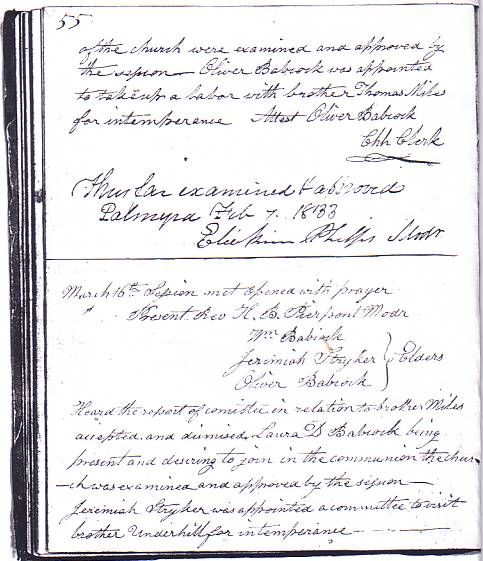 55
of the church were examined and approved by
the session — Oliver Babcock was appointed
to take up a labor with brother Thomas Niles
for intemperance Attest Oliver Babcock
Chh Clerk
Thus far examined & approved
Palmyra Feb 7. 1833
Eliphim Phelps Modr
March 16th Session met opened with prayer
Present Rev H. B. Pierpont Modr
Wm Babcock
Jeremiah Stryker } Elders
Oliver Babcock
Heard the report of comittee in relation to brother Miles
accepted and dismised. Laura D Babcock being
present and desiring to join in the communion the chur-
-ch was examined and approved by the session —
Jeremiah Stryker was appointed a committee to visit
brother Underhill for intemperance —